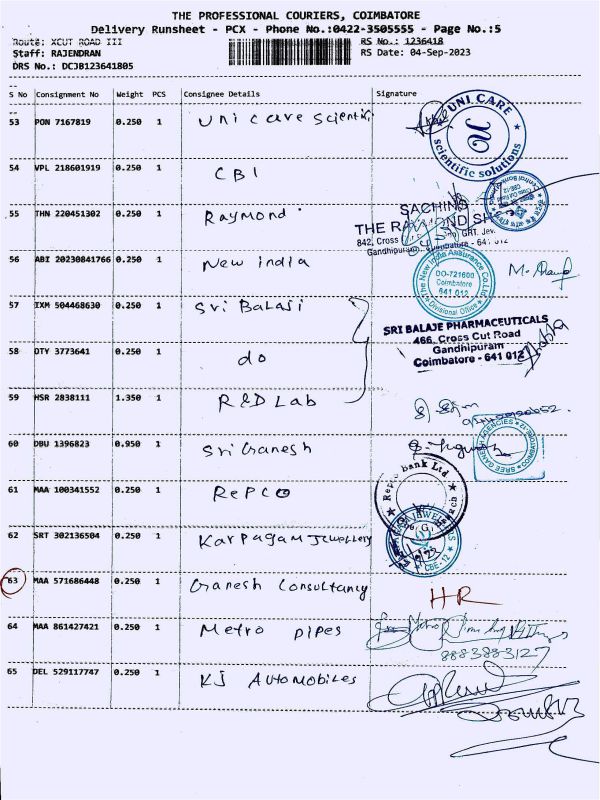 THE PROFESSIONAL COURIERS, COIMBATORE
Delivery Runsheet - PCX - Phone No.:0422-3505555 - Page No.:5
Route: XCUT ROAD III
RS No.: 1236418
Staff: RAJENDRAN
RS Date: 04-Sep-2023
DRS No.: DCJB123641805
S No Consignment No Weight PCS Consignee Details Signature
53 PON 7167819 0.250 1 Uni care Scientific
UNI CARE
scientific solutions
54 VPL 218601919 0.250 1 CBI
55 THN 220451302 0.250 1 Raymond
SACHINS
THE RAYMOND SH
842, Cross GRT. Jew
Gandhipuram, Coimbatore - 641 012
56 ABI 20230841766 0.250 1 New india
The New India Assurance Co.Ltd
DO-721600
Coimbatore
641 012
Divisional Office
57 IXM 504468630 0.250 1 Sri Balaji
SRI BALAJE PHARMACEUTICALS
466, Cross Cut Road
Gandhipuram
Coimbatore - 641 012
58 OTY 3773641 0.250 1 do
59 HSR 2838111 1.350 1 R&D Lab
60 DBU 1396823 0.950 1 Sri Ganesh
SREE GANESH AGENCIES
COIMBATORE-12
61 MAA 100341552 0.250 1 RePCO
Repco Bank Ltd
62 SRT 302136504 0.250 1 Karpagam Jewellery
CBE-12
63 MAA 571686448 0.250 1 Ganesh Consultancy
HR
64 MAA 861427421 0.250 1 Metro pipes
8883883127
65 DEL 529117747 0.250 1 KJ Automobiles